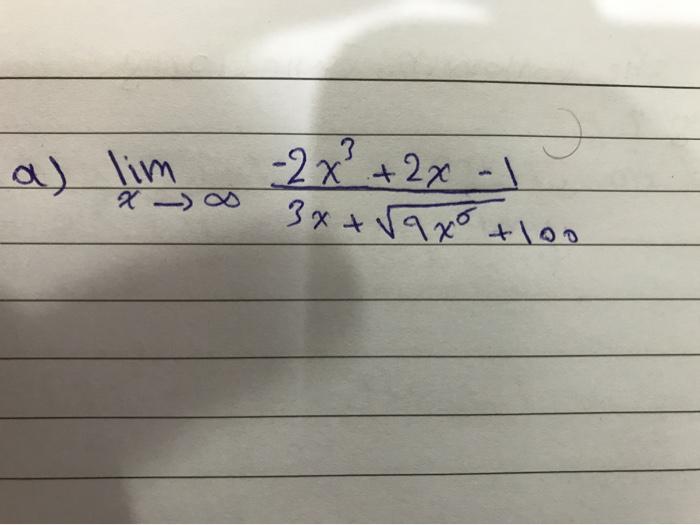 a) lim x→∞ (-2x³ + 2x - 1) / (3x + √(9x⁶) + 100)